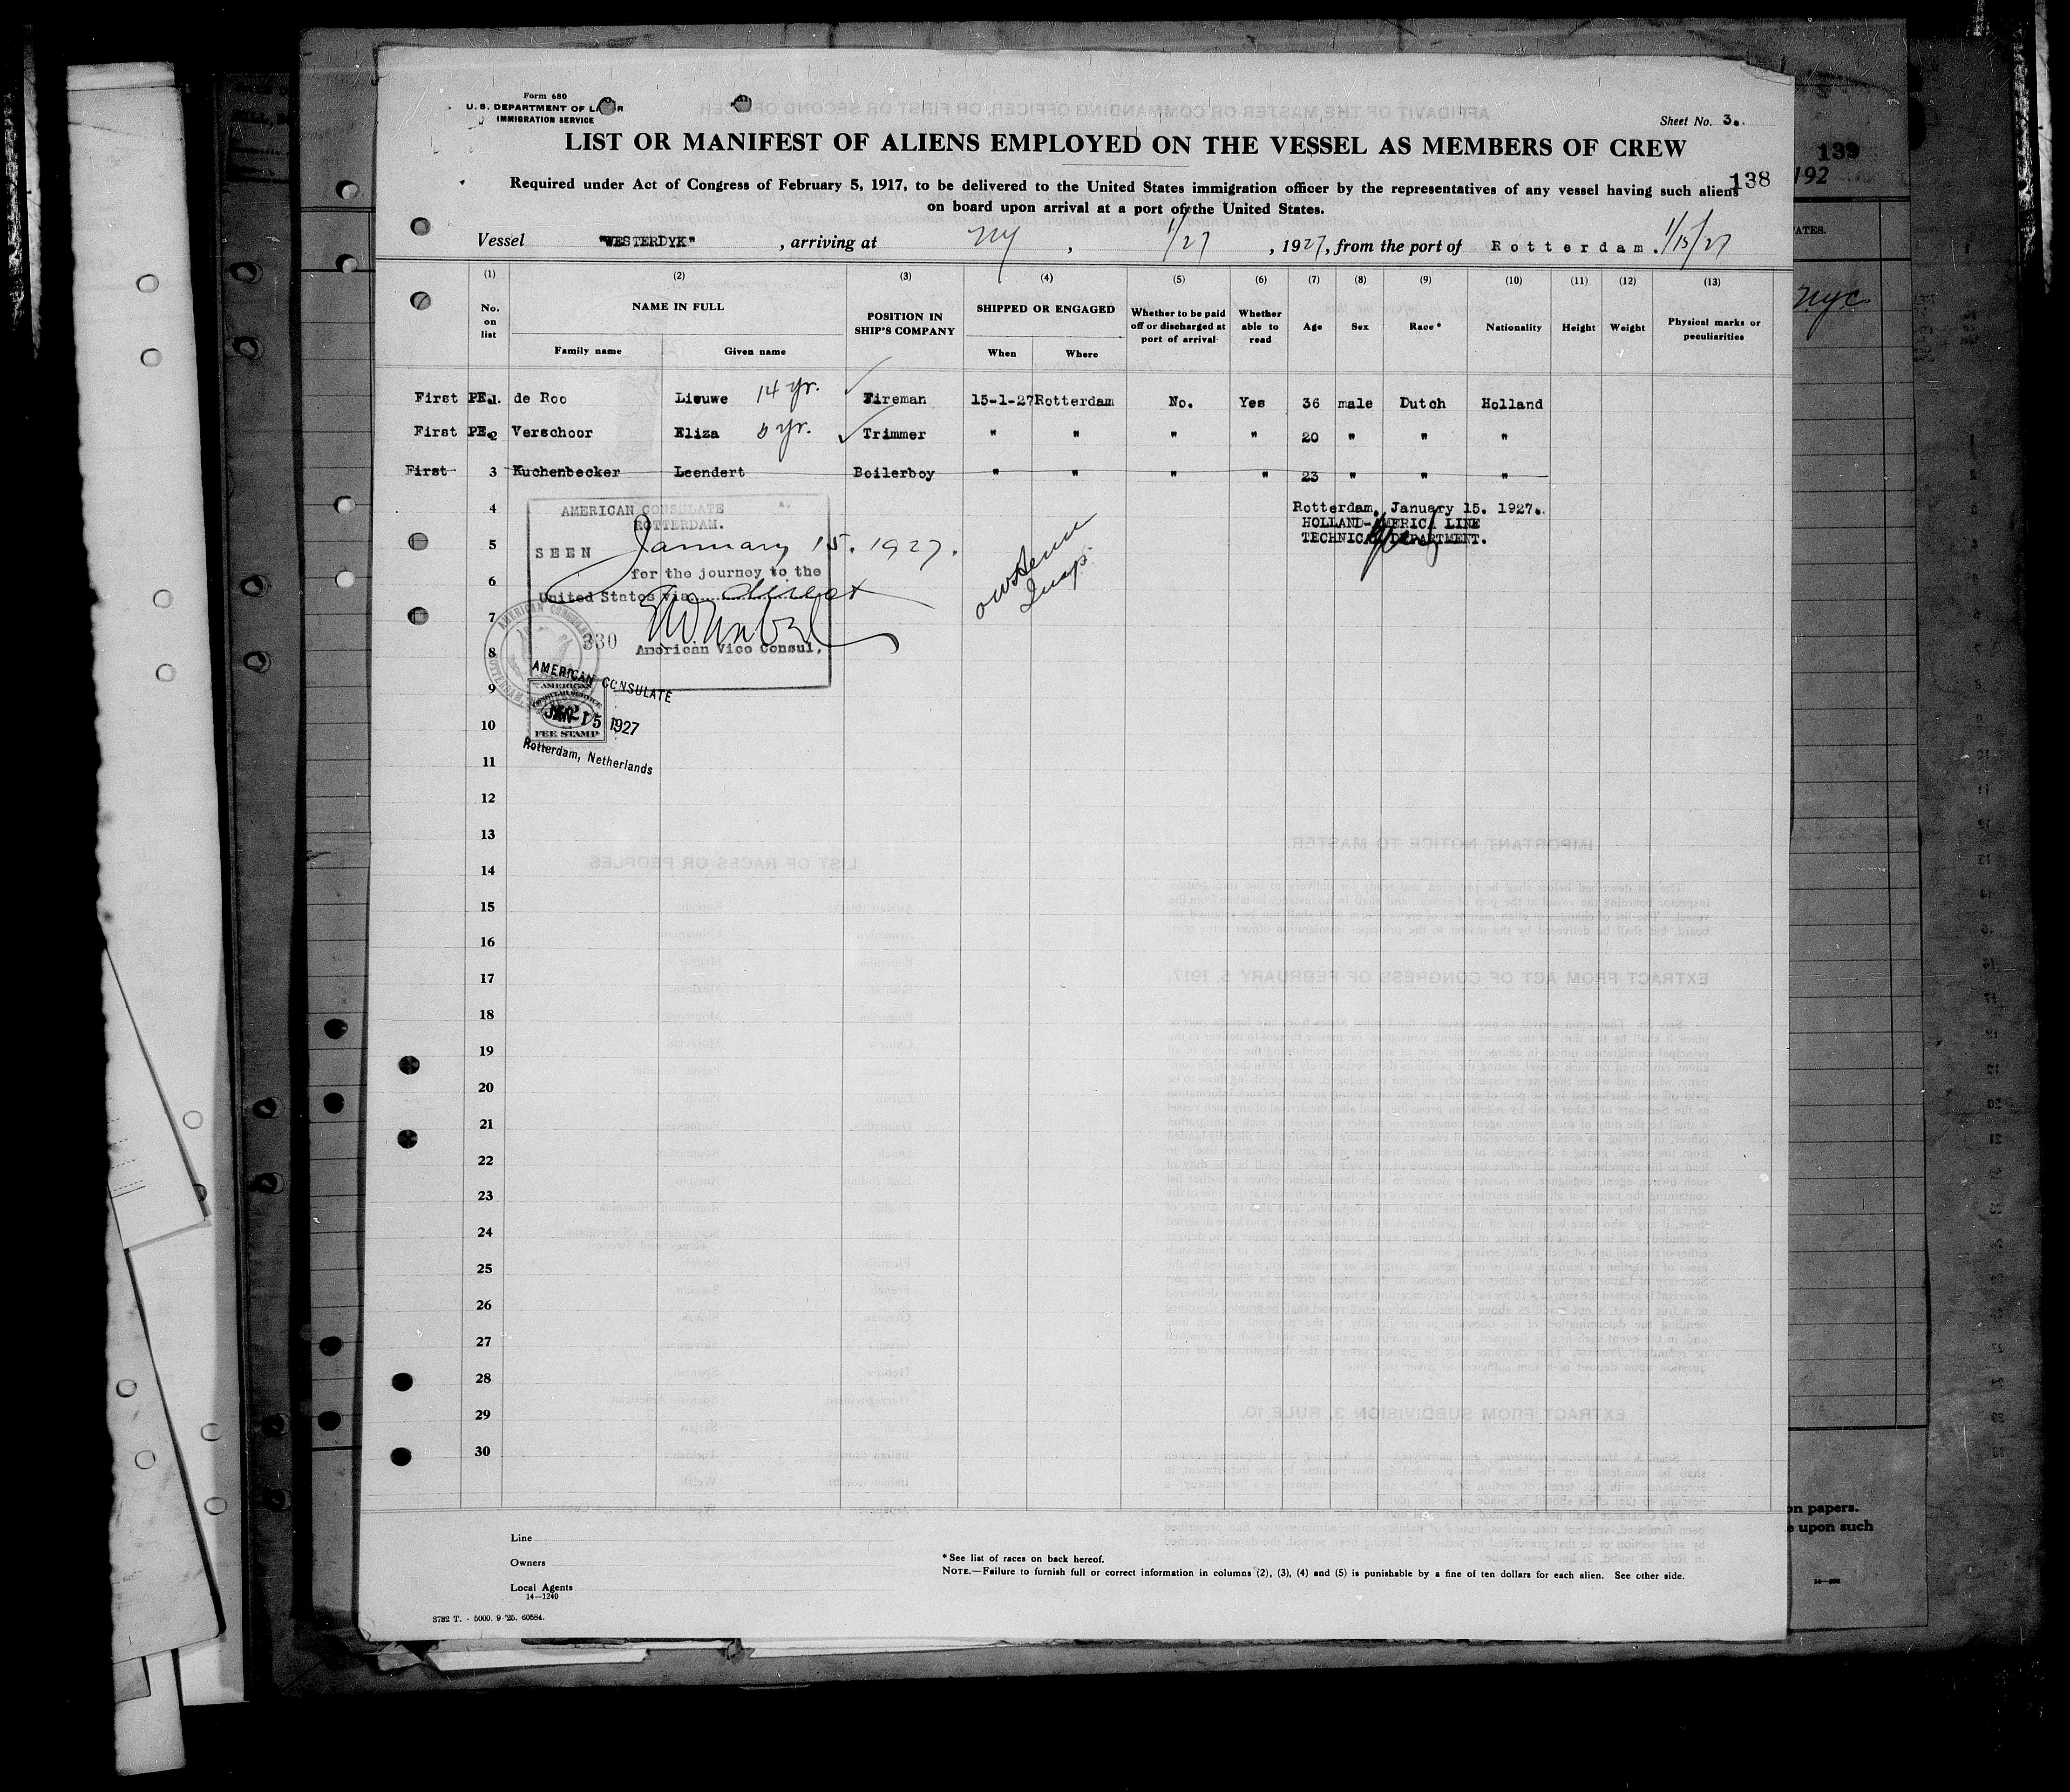 Form 680
U.S. DEPARTMENT OF LABOR
IMMIGRATION SERVICE
Sheet No. 3.
LIST OR MANIFEST OF ALIENS EMPLOYED ON THE VESSEL AS MEMBERS OF CREW
138
Required under Act of Congress of February 5, 1917, to be delivered to the United States immigration officer by the representatives of any vessel having such aliens
on board upon arrival at a port of the United States.
Vessel "WESTERDYK", arriving at NY, 1/27, 1927, from the port of Rotterdam. 1/15/27
(1) (2) (3) (4) (5) (6) (7) (8) (9) (10) (11) (12) (13)
No. on list NAME IN FULL Family name Given name POSITION IN SHIP'S COMPANY SHIPPED OR ENGAGED When Where Whether to be paid off or discharged at port of arrival Whether able to read Age Sex Race* Nationality Height Weight Physical marks or peculiarities
First PE. 1. de Roo Lieuwe 14 yr. Fireman 15-1-27 Rotterdam No. Yes 36 male Dutch Holland
First PE. 2 Verschoor Eliza yr. Trimmer " " " " 20 " " "
First 3 Kuchenbecker Leendert Boilerboy " " " " 23 " " "
4
Rotterdam, January 15. 1927.
HOLLAND-AMERICA LINE
TECHNICAL DEPARTMENT.
AMERICAN CONSULATE
ROTTERDAM.
5
SEEN January 15. 1927.
6
for the journey to the
United States via direct
7
330
8
American Vice Consul.
AMERICAN CONSULATE
9
AMERICAN CONSULAR SERVICE
10
JAN 15 1927
FEE STAMP
Rotterdam, Netherlands
11
12
13
14
15
16
17
18
19
20
21
22
23
24
25
26
27
28
29
30
Line
Owners
Local Agents
14—1240
*See list of races on back hereof.
NOTE.—Failure to furnish full or correct information in columns (2), (3), (4) and (5) is punishable by a fine of ten dollars for each alien. See other side.
3782 T. - 5000. 9-'25. 60584.
139
192
ATES.
NYC
on papers.
e upon such